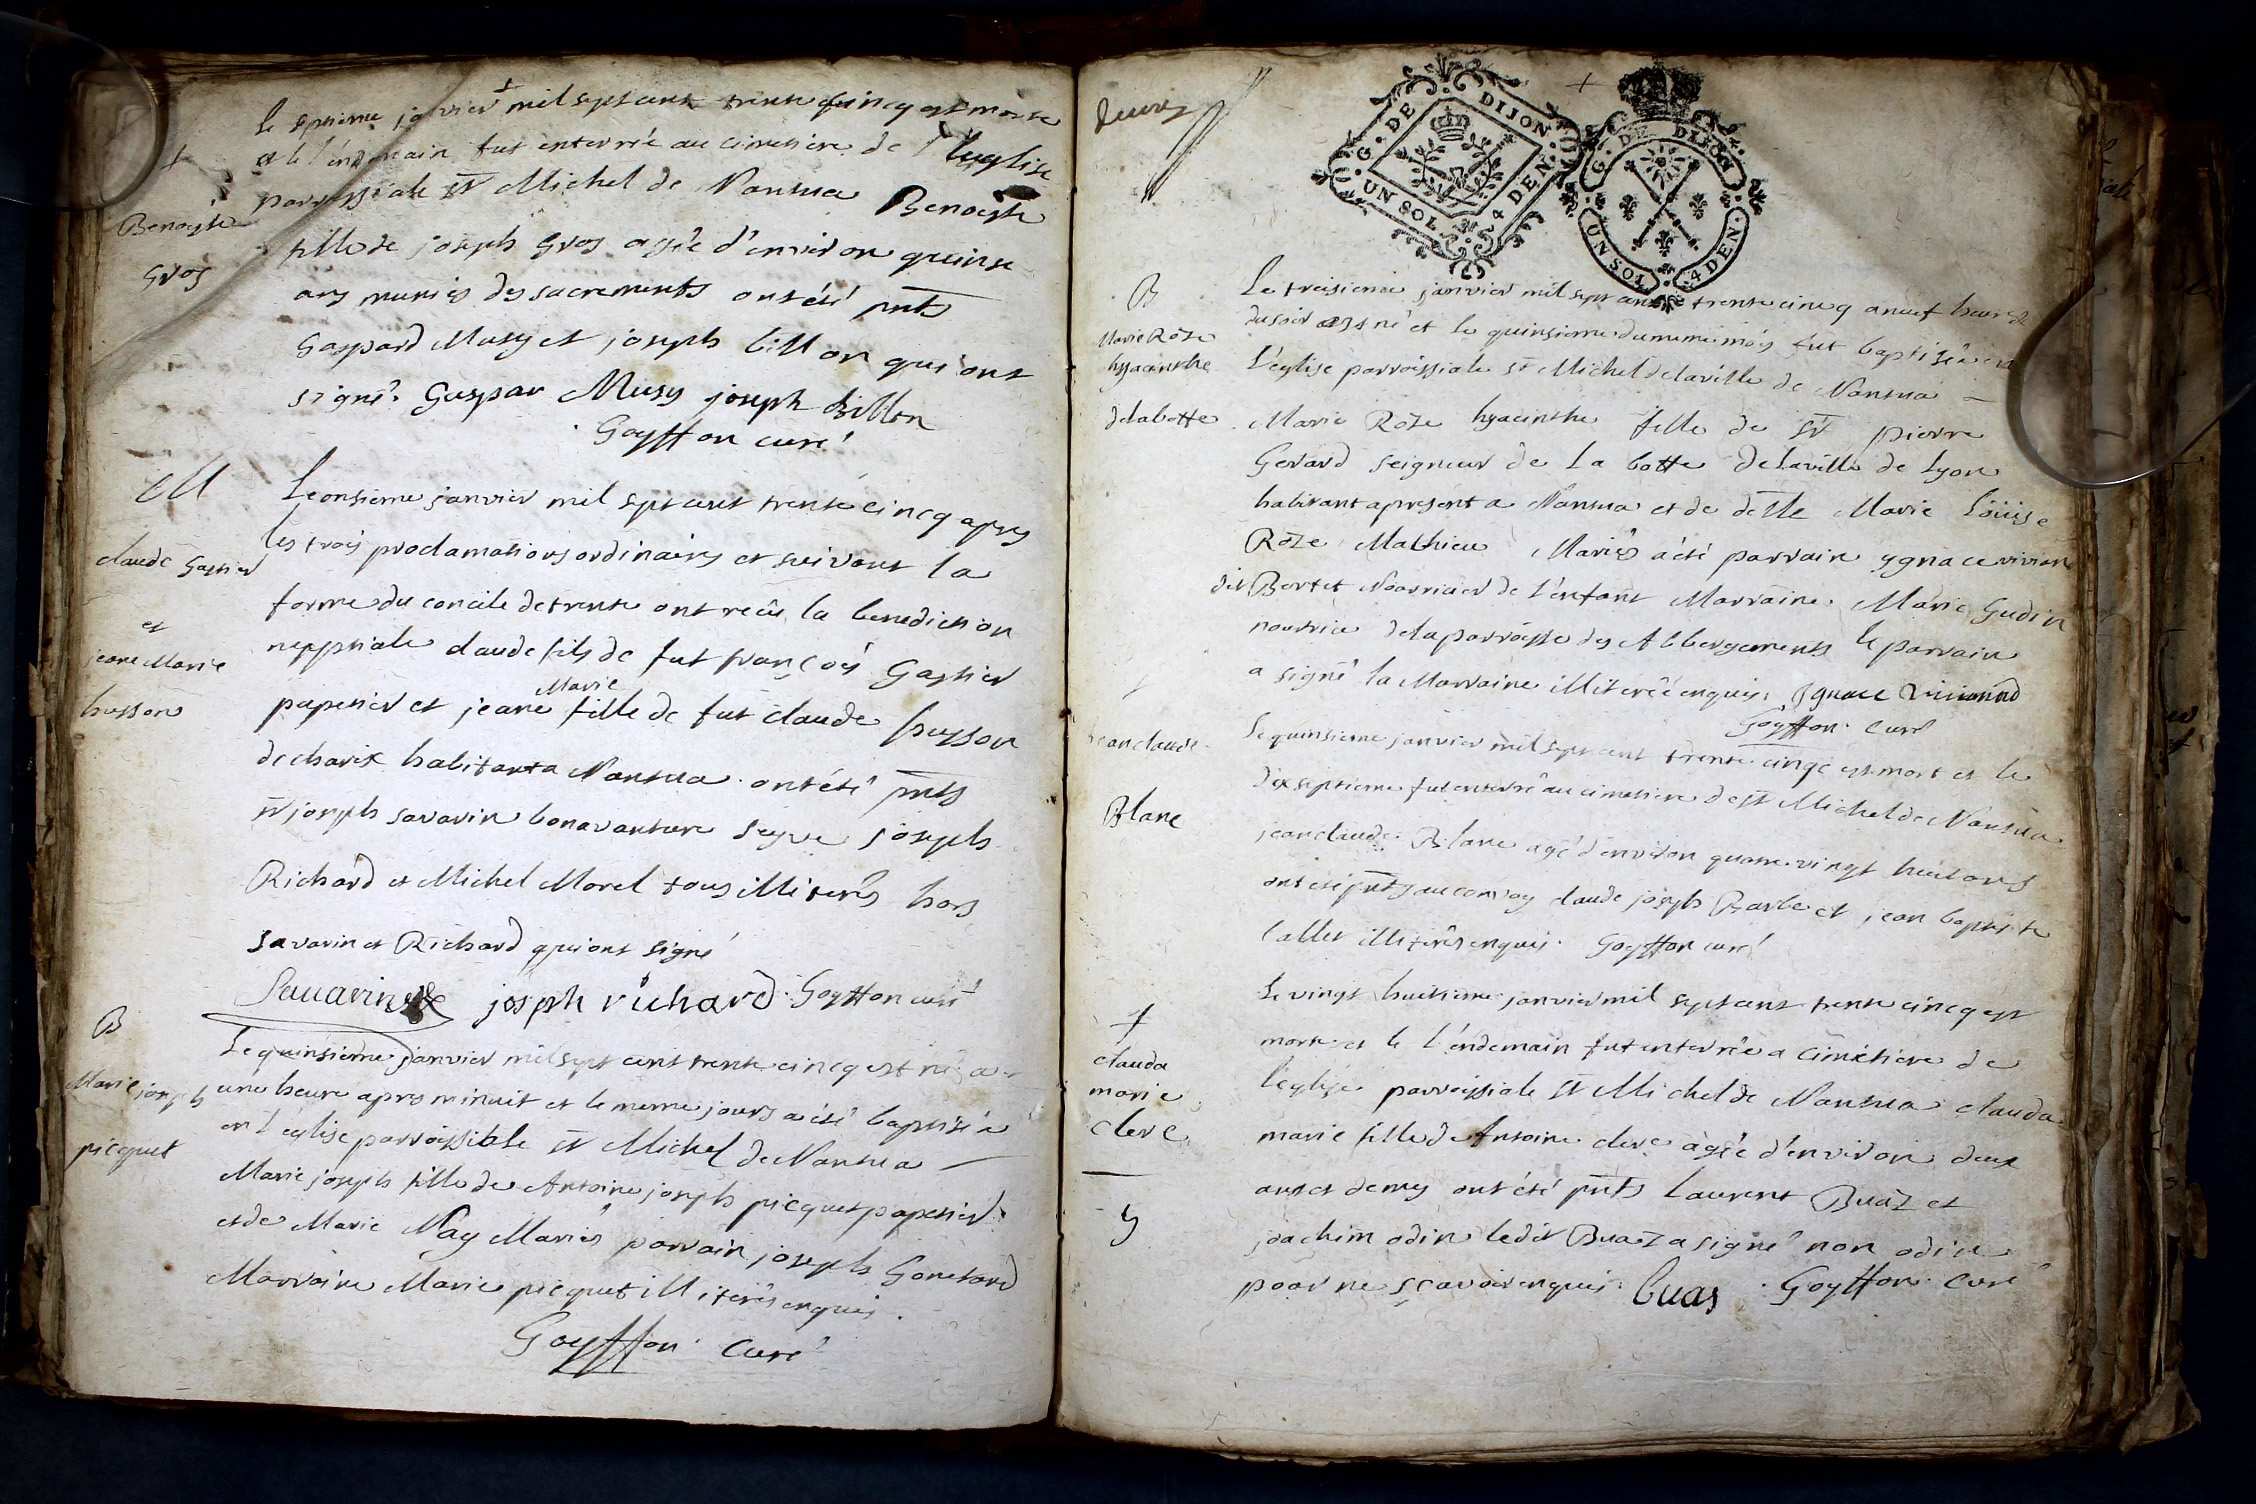 +
Le septieme janvier mil sept cent trente cincq est morte
et le l'endemain fut enterrée au cimetiere de l'eglise
parroissiale St Michel de Nantua Benoiste
fille de joseph Gros agée d'environ quinse
ans munies des sacrements ont été pnts
Gaspard Musy et joseph billon qui ont
signé. Gaspar Musy joseph Billon
Goyffon curé
+
Benoiste
Gros
M
claude Gastier
et
jeane Marie
husson
Le onsieme janvier mil sept cent trente cincq apres
les trois proclamations ordinaires et suivant la
forme du concile de trente ont reçus la benediction
neptiale claude fils de fut françois Gastier
papetier et jeane Marie fille de fut claude husson
de charix habitant a Nantua ont été pnts
Sr joseph savarin bonavanture seyve joseph
Richard et Michel Morel tous illiterés hors
savarin et Richard qui ont signé
Sauarin joseph richard Goyffon curé
B
Marie joseph
picquet
Le quinsieme janvier mil sept cent trente cincq est née a
une heure apres minuit et le meme jours a été baptisée
en l'église parroissiale St Michel de Nantua
Marie joseph fille de Antoine joseph picquet papetier
et de Marie Nay Mariés parrain joseph Gonetard
Marraine Marie picquet illiterés enquis.
Goyffon curé
deux
+
G. DE DIJON
UN SOL 4 DEN.
G. DE DIJON
UN SOL 4 DEN.
B
Marie Roze
hyacinthe
delabotte
Le treisieme janvier mil sept cent trente cincq a neuf heures
du soir est né et le quinsieme du meme mois fut baptisée en
l'église parroissiale St Michel de la ville de Nantua
Marie Roze hyacinthe fille de Sr pierre
Gerard seigneur de la botte de la ville de Lyon
habitant apresent a Nantua et de delle Marie Loüise
Roze Mathieu Mariés a été parrain ygnace vivian
dit Bertet Nourricier de l'enfant Marraine Marie Gudin
nourrice de la parroisse des Abbergements le parrain
a signé la Marraine illiterée enquis. Ignace Viviannd
Goyffon curé
+
jean claude
Blanc
Le quinsieme janvier mil sept cent trente cinqc est mort et le
dixseptieme fut enterré au cimetiere de St Michel de Nantua
jean claude Blanc agé d'environ quatre vingt huit ans
ont été pnts au convoy claude joseph Barbe et jean baptiste
Lallet illiterés enquis. Goyffon curé
+
clauda
marie
clere
Le vingt huitieme janvier mil sept cent trente cincq est
morte et le l'endemain fut enterrée a cimétiere de
l'eglise parroissiale St Michel de Nantua clauda
marie fille de Antoine clere agée d'environ deux
ans et demy ont été pnts Laurent Buaz et
joachim odin ledit Buaz a signé non odin
pour ne sçavoir enquis. buas Goyffon curé